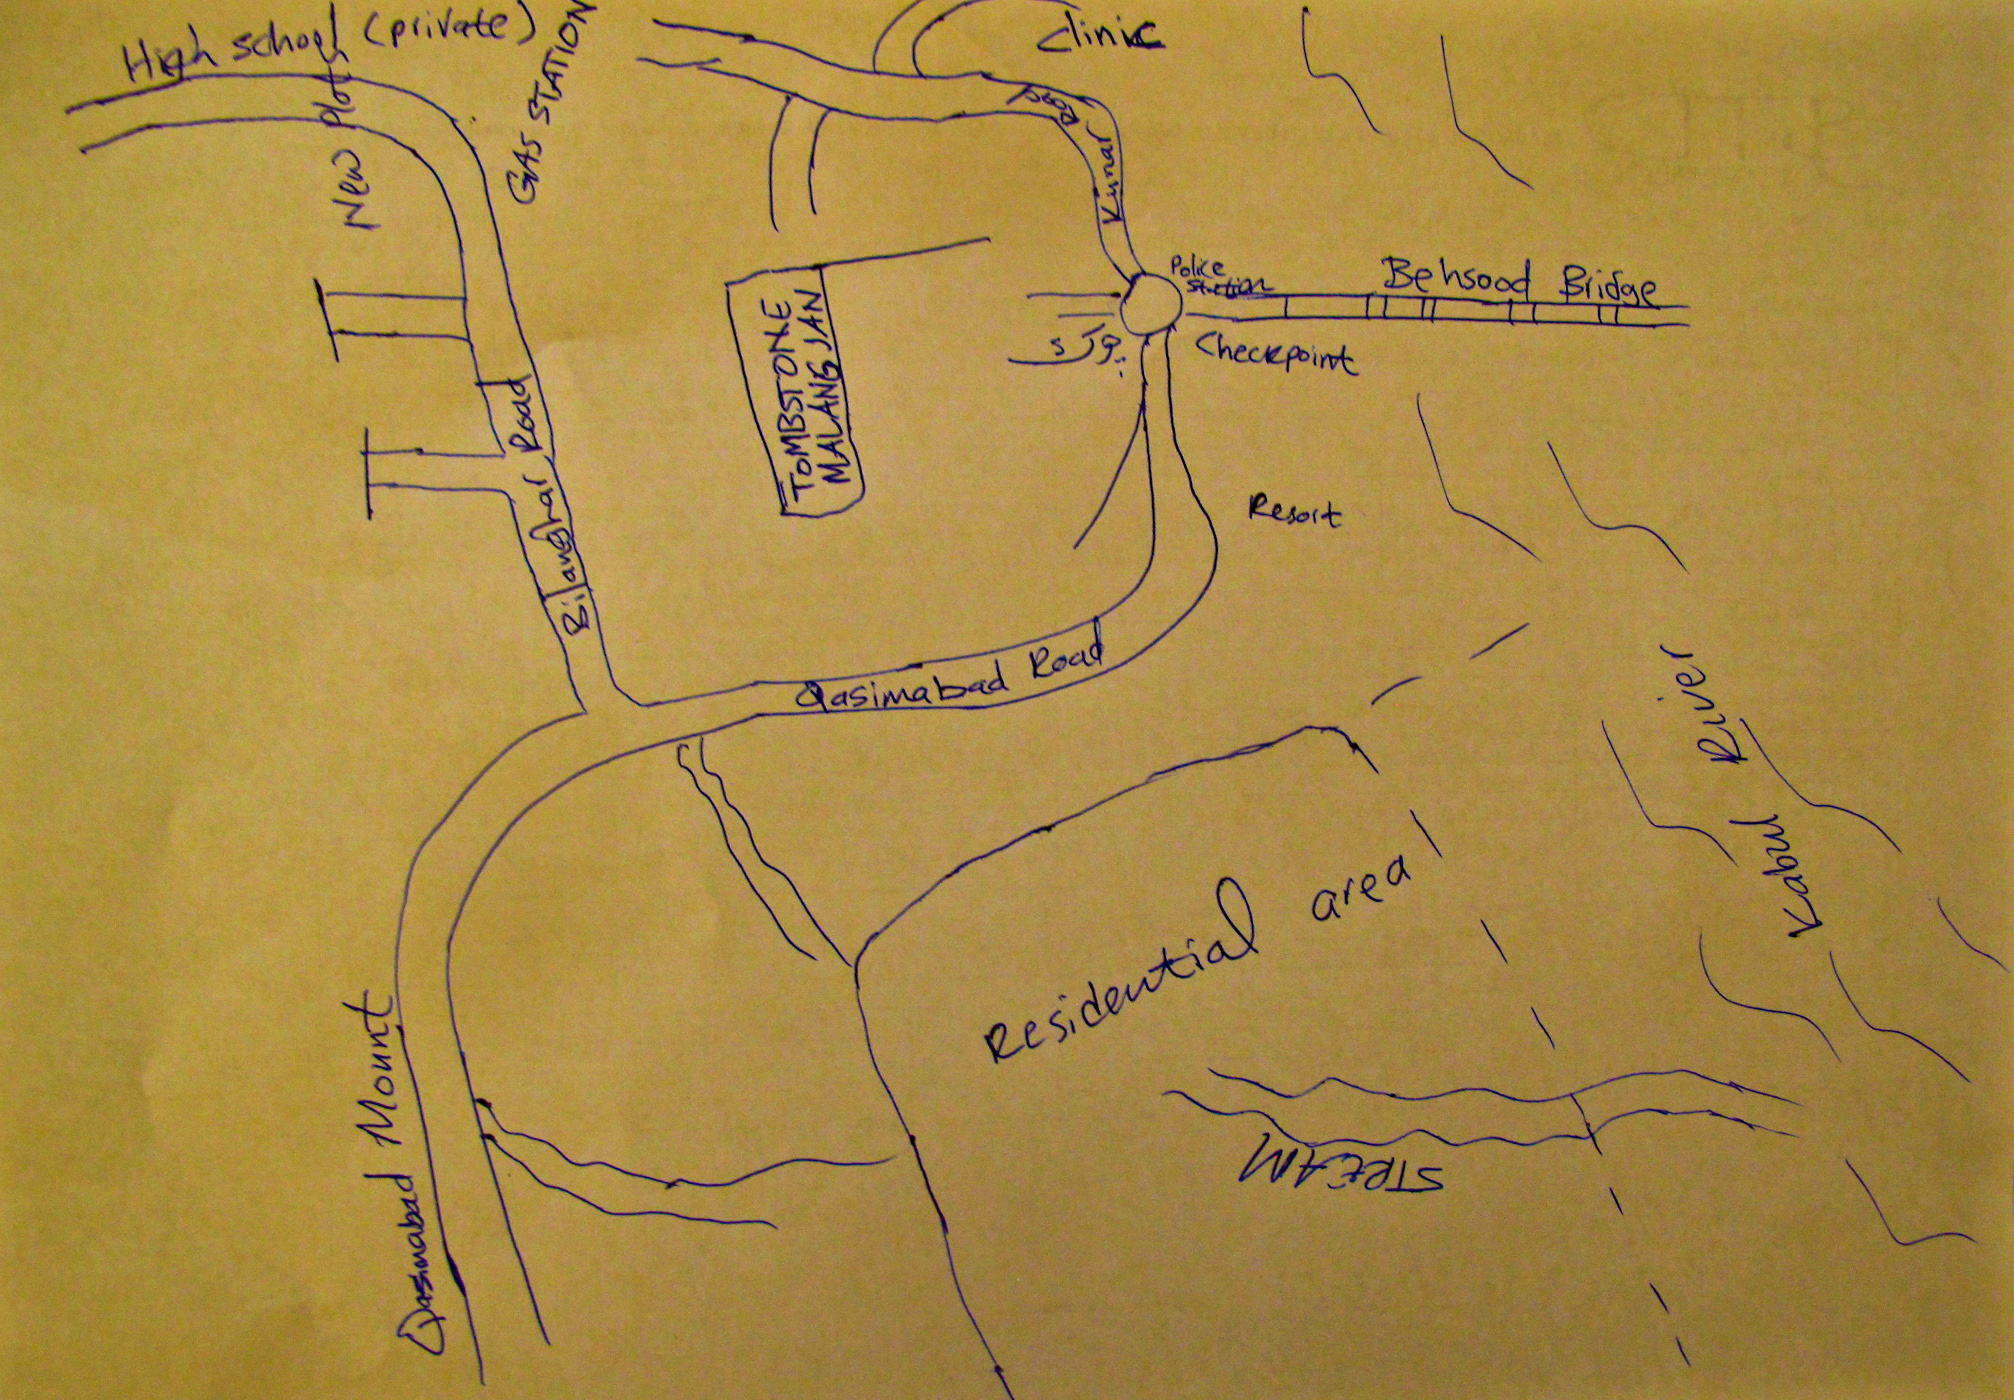 High school (private)
New Plots
GAS STATION
Clinic
Kunar Road
Police
Station
Behsood Bridge
Checkpoint
TOMBSTONE
MALANG JAN
Bilanghar Road
Resort
Qasimabad Road
Kabul River
Residential area
STREAM
Qasimabad Mount